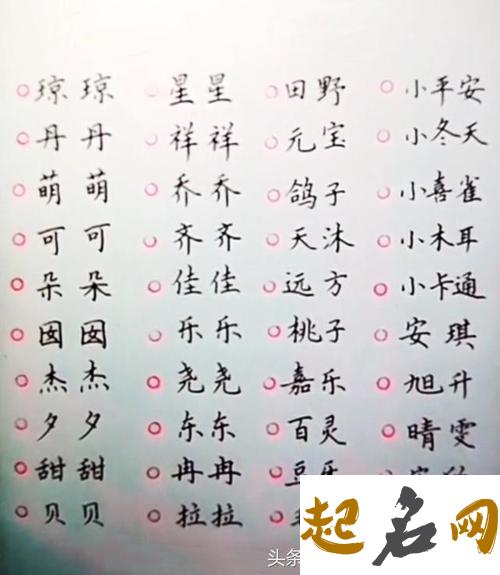 琼琼 星星 田野 小平安
丹丹 祥祥 元宝 小冬天
萌萌 乔乔 鸽子 小喜雀
可可 齐齐 天沐 小木耳
朵朵 佳佳 远方 小卡通
囡囡 乐乐 桃子 安琪
杰杰 尧尧 嘉乐 旭升
夕夕 东东 百灵 晴雯
甜甜 冉冉 豆乐
贝贝 拉拉
起名网
头条